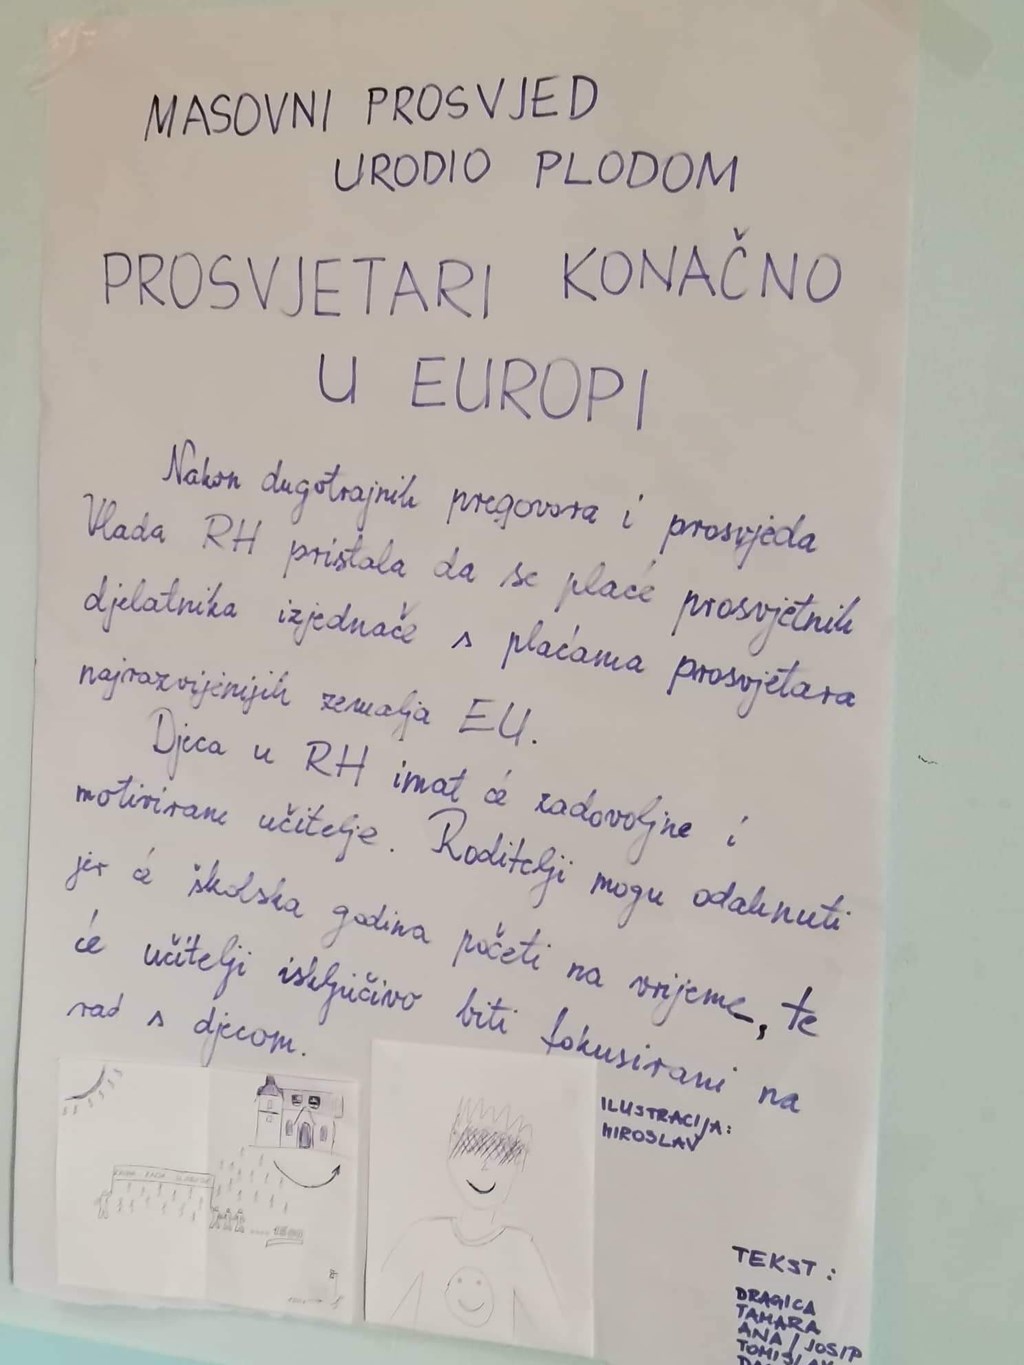 MASOVNI PROSVJED
URODIO PLODOM
PROSVJETARI KONAČNO
U EUROPI
Nakon dugotrajnih pregovora i prosvjeda
Vlada RH pristala da se plaće prosvjetnih
djelatnika izjednače s plaćama prosvjetara
najrazvijenijih zemalja EU.
Djeca u RH imat će zadovoljne i
motivirane učitelje. Roditelji mogu odahnuti
jer će školska godina početi na vrijeme, te
će učitelji isključivo biti fokusirani na
rad s djecom.
ILUSTRACIJA:
MIROSLAV
TEKST:
DRAGICA
TAMARA
ANA / JOSIP